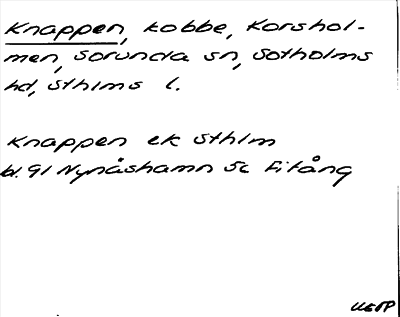 Knappen, kobbe, Korshol-
men, Sorunda sn, Sotholms
hd, Sthlms l.
Knappen ek Sthlm
bl. 91 Nynäshamn 5c Fifång